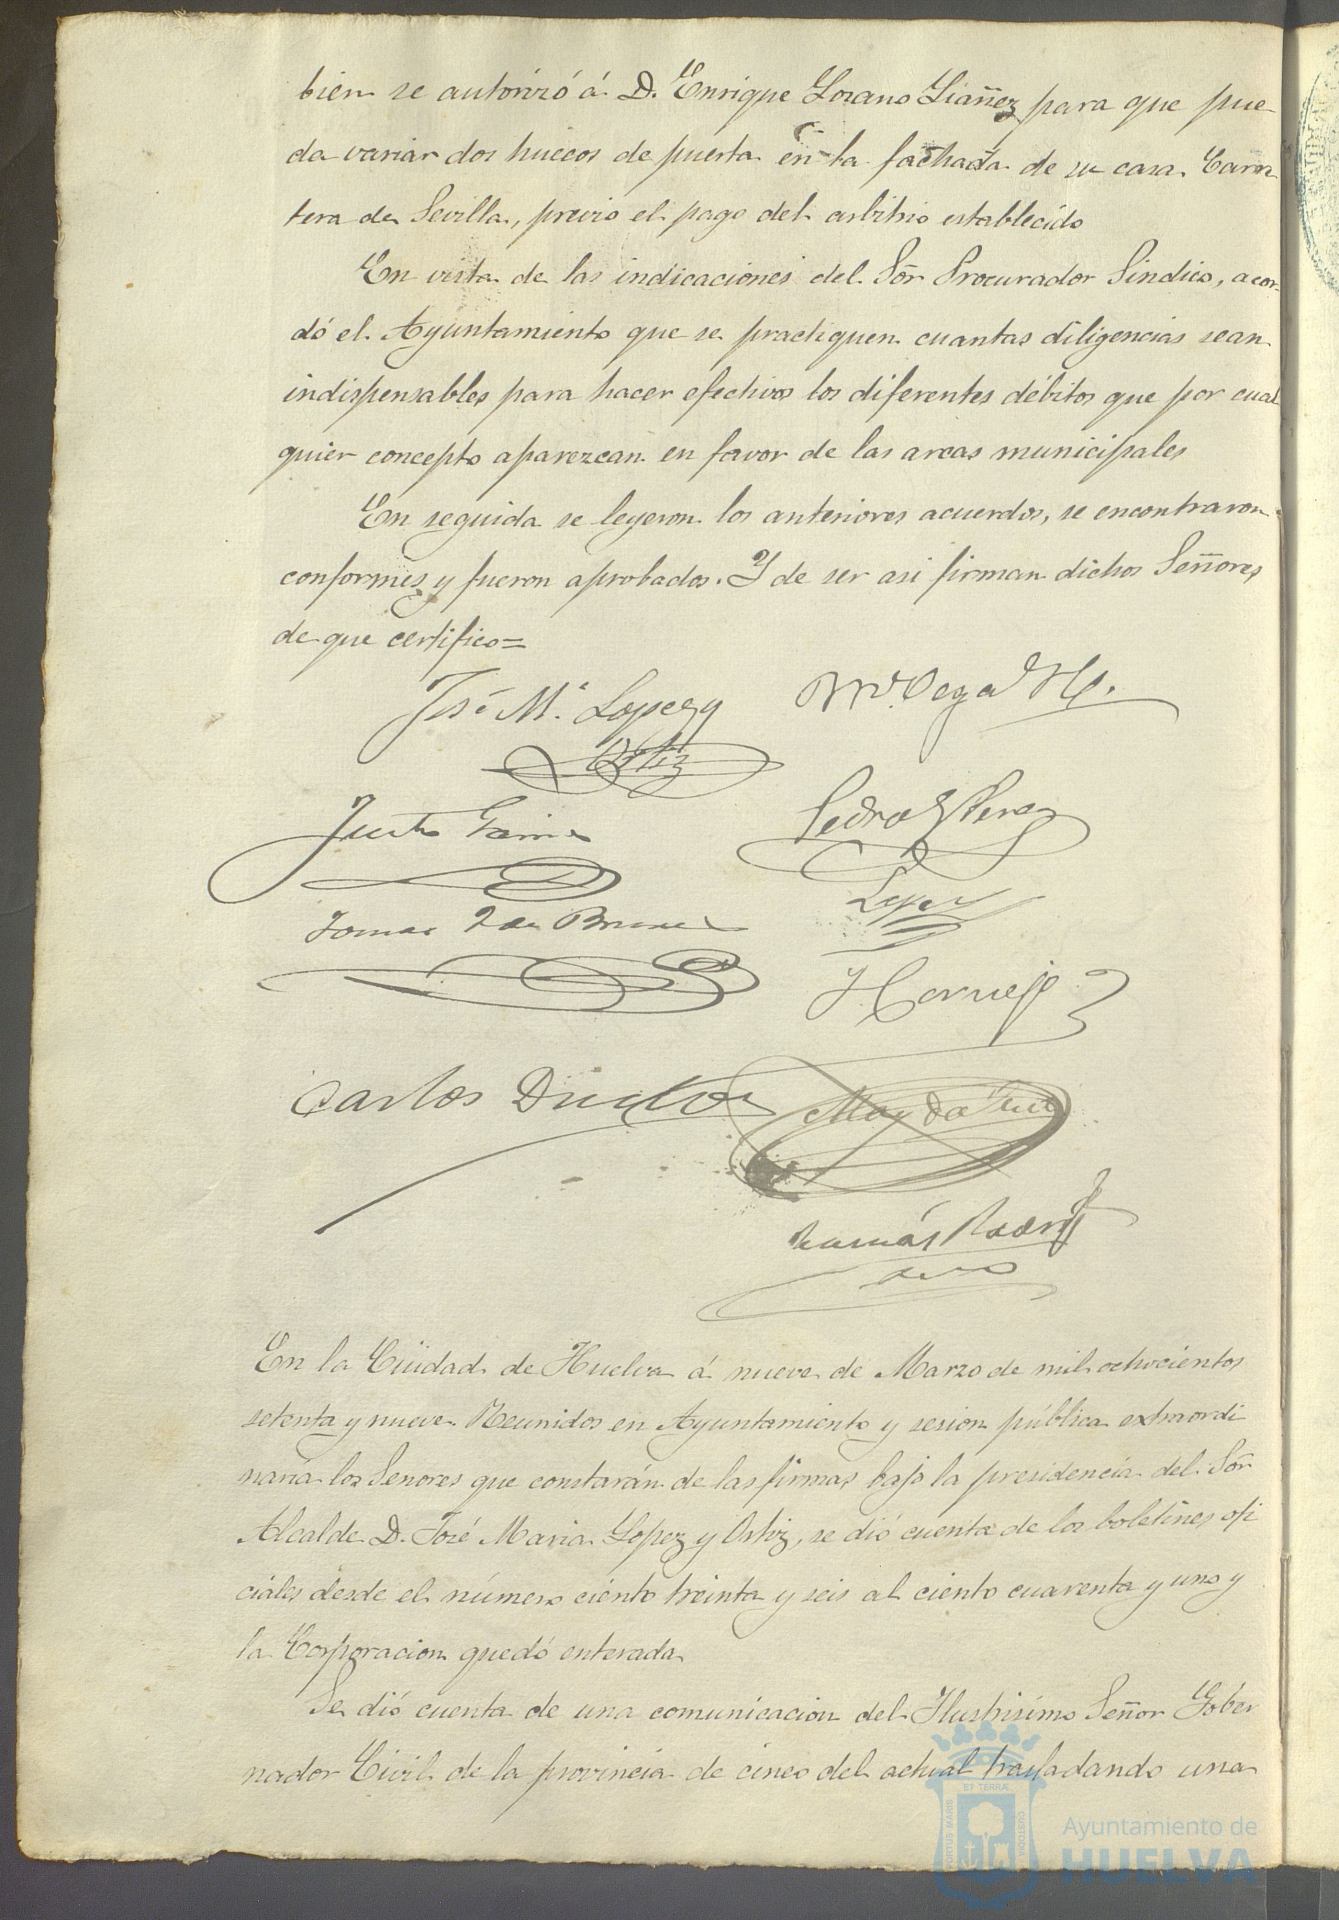 bien se autorizó á D. Enrique Lozano Liañez para que pue-
da variar dos huecos de puerta en la fachada de su casa Carre-
tera de Sevilla, previo el pago del arbitrio establecido
En vista de las indicaciones del Sor Procurador Sindico, acor-
dó el Ayuntamiento que se practiquen cuantas diligencias sean
indispensables para hacer efectivos los diferentes débitos que por cual
quier concepto aparezcan en favor de las arcas municipales
En seguida se leyeron los anteriores acuerdos, se encontraron
conformes y fueron aprobados. Y de ser asi firman dichos Señores
de que certifico=
José Mª. Lopez y
Ortiz
Vega
Justo
Pedro Perez
Lopez
Tomas
Hornejo
Carlos
Tomás Rodrig
En la Ciudad de Huelva á nueve de Marzo de mil ochocientos
setenta y nueve. Reunidos en Ayuntamiento y sesion pública extraordi
naria los Señores que constarán de las firmas bajo la presidencia del Sor
Alcalde D. José Maria Lopez y Ortiz, se dió cuenta de los boletines ofi
ciales desde el número ciento treinta y seis al ciento cuarenta y uno y
la Corporacion quedó enterada
Se dió cuenta de una comunicacion del Ilustrisimo Señor Gober
nador Civil de la provincia de cinco del actual trasladando una
PORTUS MARIS ET TERRÆ CUSTODIA
Ayuntamiento de
HUELVA